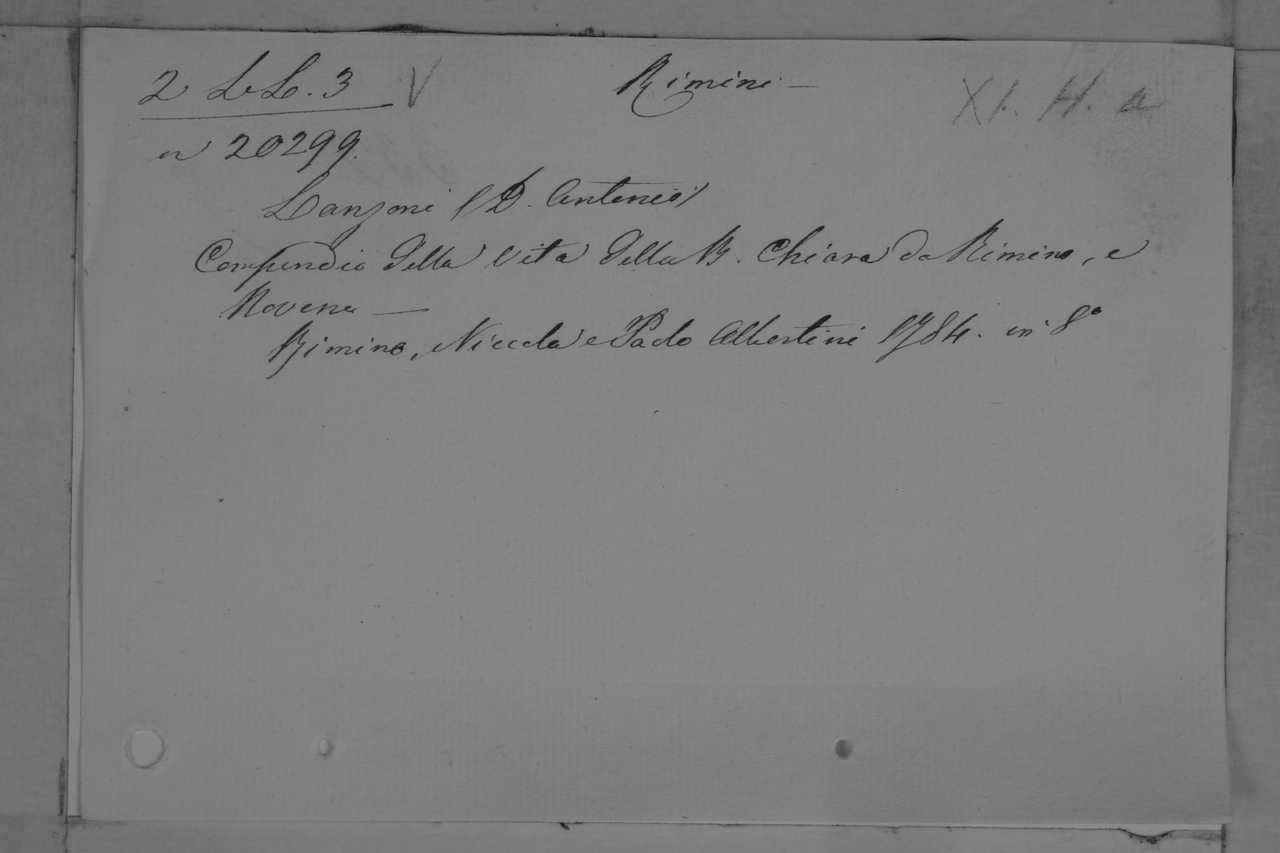 2 LL. 3 V Rimini — XI. H. a
n 20299.
Lanzoni (D. Antonio)
Compendio della Vita della B. Chiara da Rimino, e
Novena —
Rimino, Niccola e Paolo Albertini 1784. in 8º